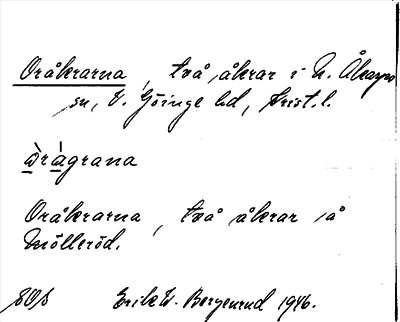 Oråkrarna, två åkrar i N. Åkarps
sn, V. Göinge hd, Krist. l.
ὼrágrana
Oråkrarna, två åkrar å
Mölleröd.
Erik W. Bergenrud 1946.